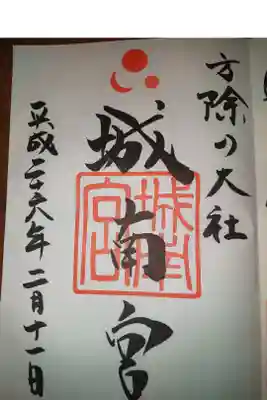 方除の大社
城南宮
城南宮印
平成二十八年二月十一日